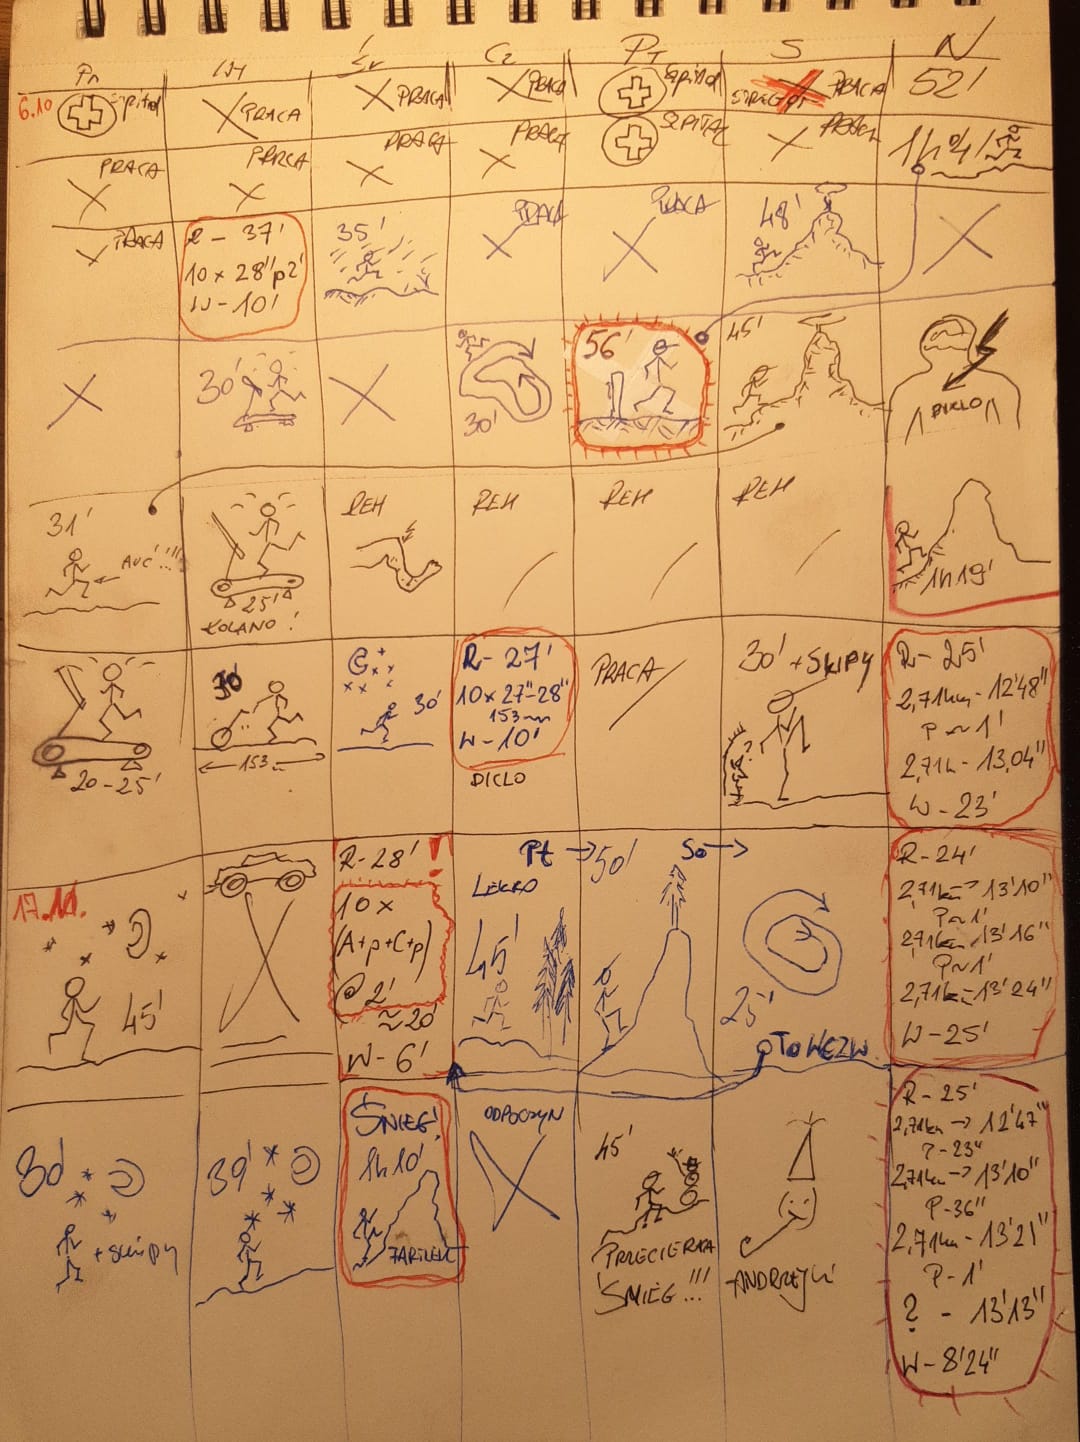 Pn Wt Śr Cz PT S N
6.10 Szpital
PRACA
PRACA
PRACA
Szpital
PRACA
52'
PRACA
PRACA
PRACA
PRACA
SZPITAL
PRACA
1h 4'
PRACA
R - 37'
10 x 28" p2'
W - 10'
35'
PRACA
PRACA
48'
30'
30'
56'
45'
DICLO
31'
AUĆ!!!
25'
KOLANO!
REH
REH
REH
REH
1h19'
20 - 25'
30'
153m
30'
R - 27'
10 x 27"-28"
153m
W - 10'
DICLO
PRACA
30' + SKIPY
R - 25'
2,71km - 12'48"
P ~ 1'
2,71k - 13,04"
W - 23'
17.11.
45'
R - 28' !
10 x
(A+p+C+p)
@ 2'
≈ 20'
W - 6'
Pt → 50'
LEKKO
45'
So →
25'
R - 24'
2,71km → 13'10"
P ~ 1'
2,71km 13'16"
P ~ 1'
2,71k - 13'24"
W - 25'
30'
+ skipy
39'
ŚNIEG!
1h10'
ODPOCZYN
45'
PRZECIERKA
ŚNIEG!!!
ANDRZEJKI
R - 25'
2,71km → 12'47"
P - 23"
2,71km → 13'10"
P - 36"
2,71km - 13'21"
P - 1'
? - 13'13"
W - 8'24"